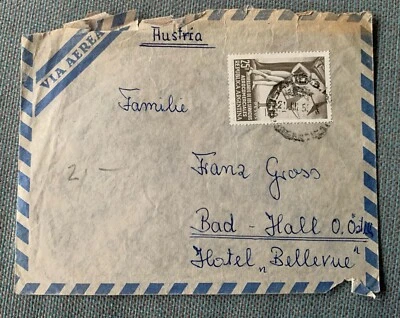 Austria
VIA AEREA
Familie
2,—
Franz Gross
Bad - Hall O. Öst
Hotel „Bellevue"
75
REPUBLICA ARGENTINA